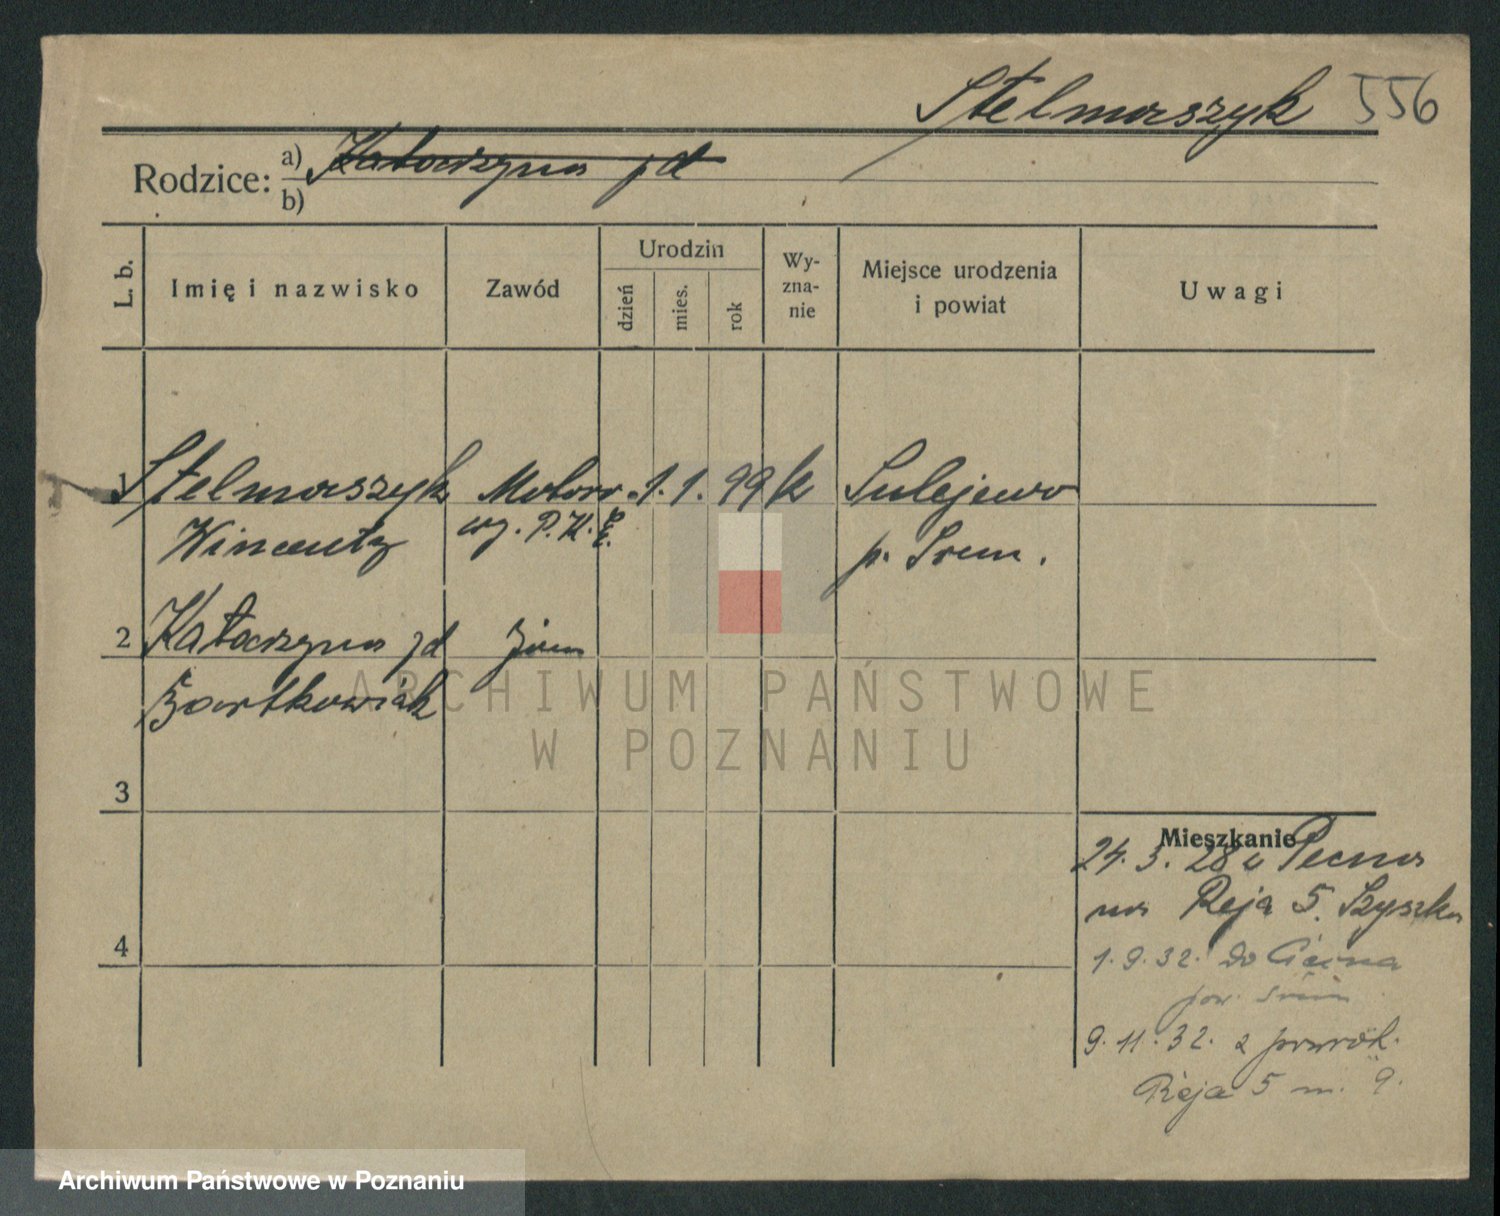 Stelmaszyk 556
Rodzice: a) Katarzyna jd
b)
L. b.
Imię i nazwisko
Zawód
Urodzin
dzień
mies.
rok
Wy-
zna-
nie
Miejsce urodzenia
i powiat
Uwagi
1 Stelmaszyk Motoro 1. 1. 99 k Sulejewo
Wincenty P.K.E. p. Srem.
2 Katarzyna jd
Bartkowiak
ARCHIWUM PAŃSTWOWE
W POZNANIU
3
Mieszkanie
24. 3. 28 Pecna
na Reja 5. Szyszka
4
1. 9. 32. do
pow. Srem
9. 11. 32. z powrót.
Reja 5 m. 9.
Archiwum Państwowe w Poznaniu